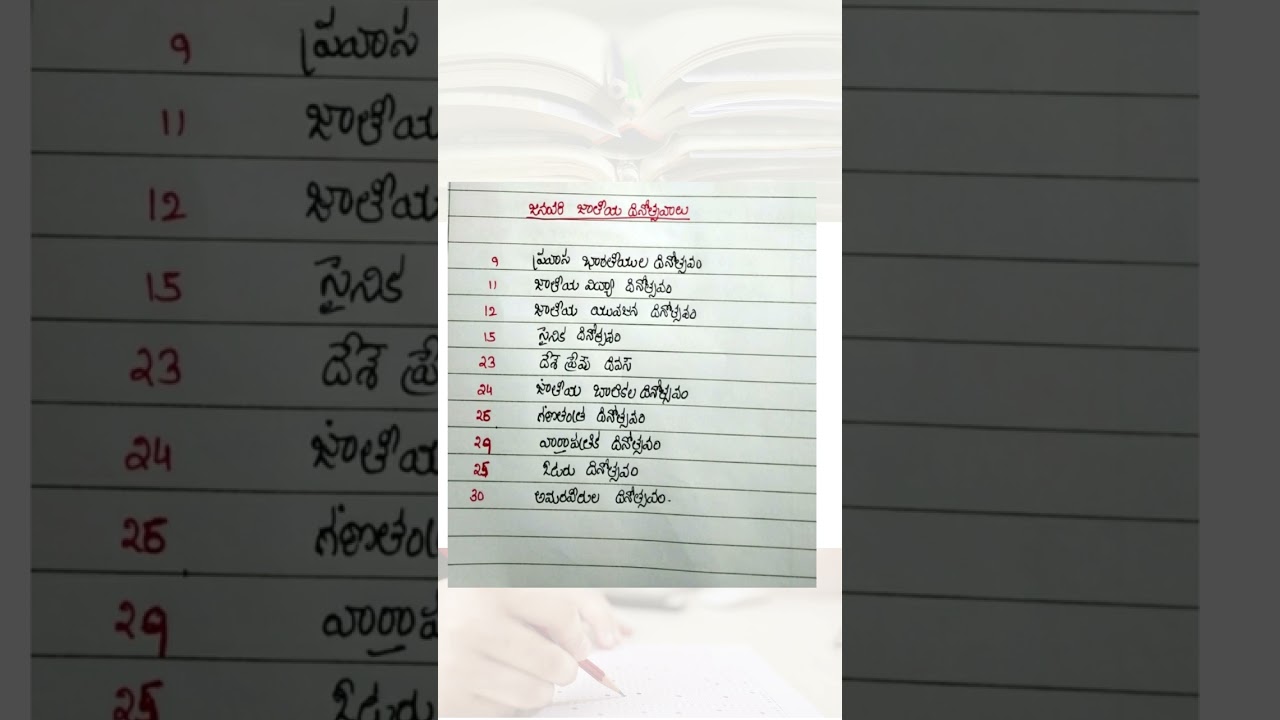 జనవరి జాతీయ దినోత్సవాలు
9 ప్రవాస భారతీయుల దినోత్సవం
11 జాతీయ విద్యా దినోత్సవం
12 జాతీయ యువజన దినోత్సవం
15 సైనిక దినోత్సవం
23 దేశ ప్రేమ దివస్
24 జాతీయ బాలికల దినోత్సవం
26 గణతంత్ర దినోత్సవం
29 వార్తాపత్రిక దినోత్సవం
25 ఓటరు దినోత్సవం
30 అమరవీరుల దినోత్సవం.